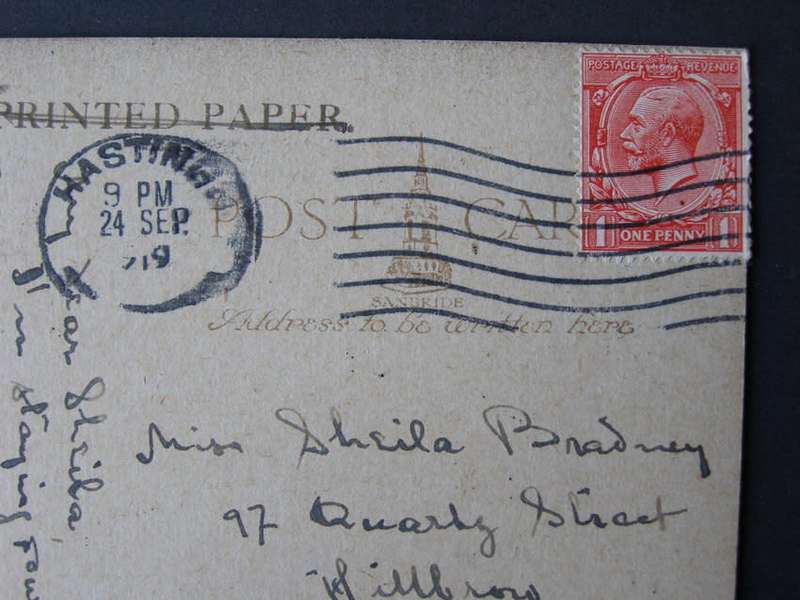 PRINTED PAPER.
POSTAGE REVENUE
HASTINGS
9 PM
24 SEP
19
POST CARD
1 ONE PENNY 1
SANBRIDE
Address to be written here
Dear Sheila
I'm staying
Miss Sheila Bradney
97 Street